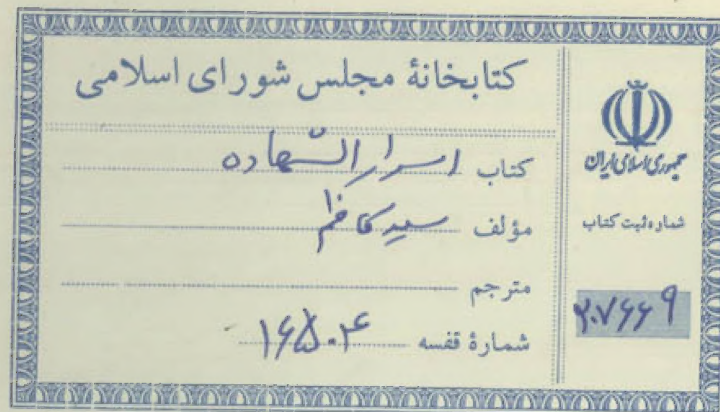 کتابخانهٔ مجلس شورای اسلامی
کتاب اسرار الشهاده
مؤلف سید کاظم
مترجم
شمارهٔ قفسه ۱۶۵۰۴
جمهوری اسلامی ایران
شماره ثبت کتاب
۳۰۷۶۶۹